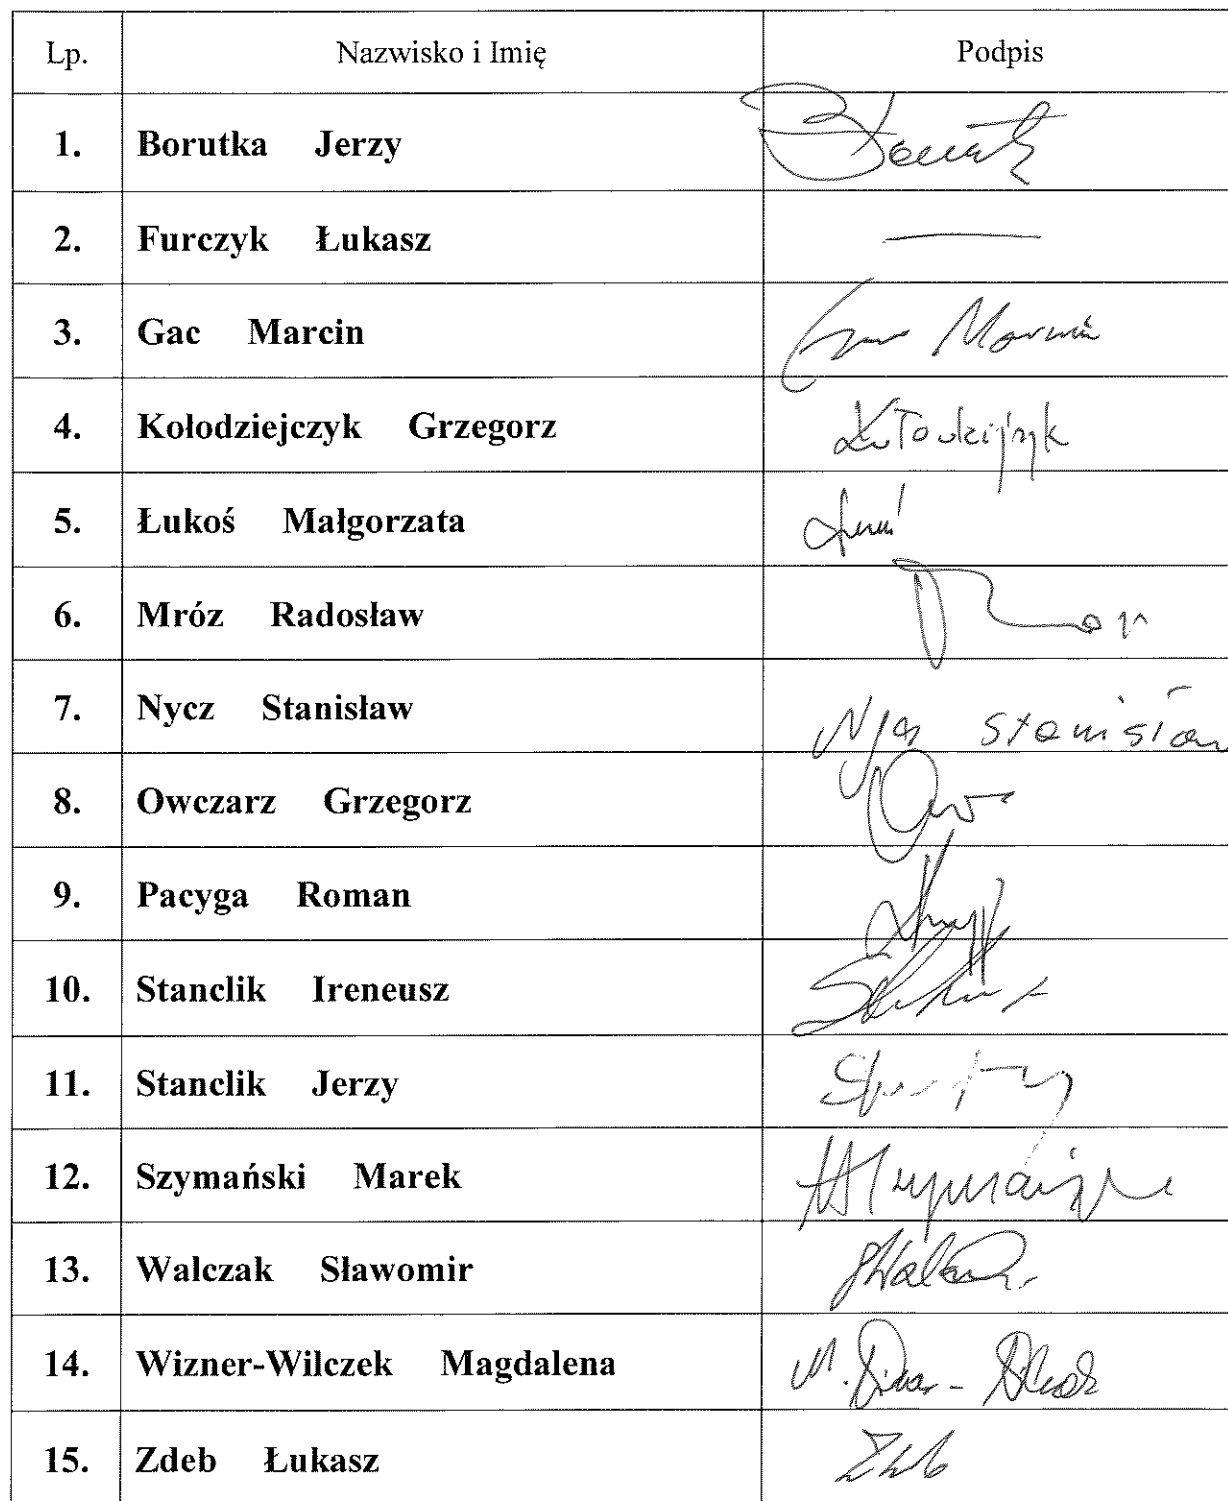 Lp. Nazwisko i Imię Podpis
1. Borutka Jerzy
2. Furczyk Łukasz —
3. Gac Marcin Gac Marcin
4. Kołodziejczyk Grzegorz Kołodziejczyk
5. Łukoś Małgorzata
6. Mróz Radosław
7. Nycz Stanisław Nycz Stanisław
8. Owczarz Grzegorz
9. Pacyga Roman
10. Stanclik Ireneusz
11. Stanclik Jerzy
12. Szymański Marek M Szymański
13. Walczak Sławomir
14. Wizner-Wilczek Magdalena
15. Zdeb Łukasz Zdeb